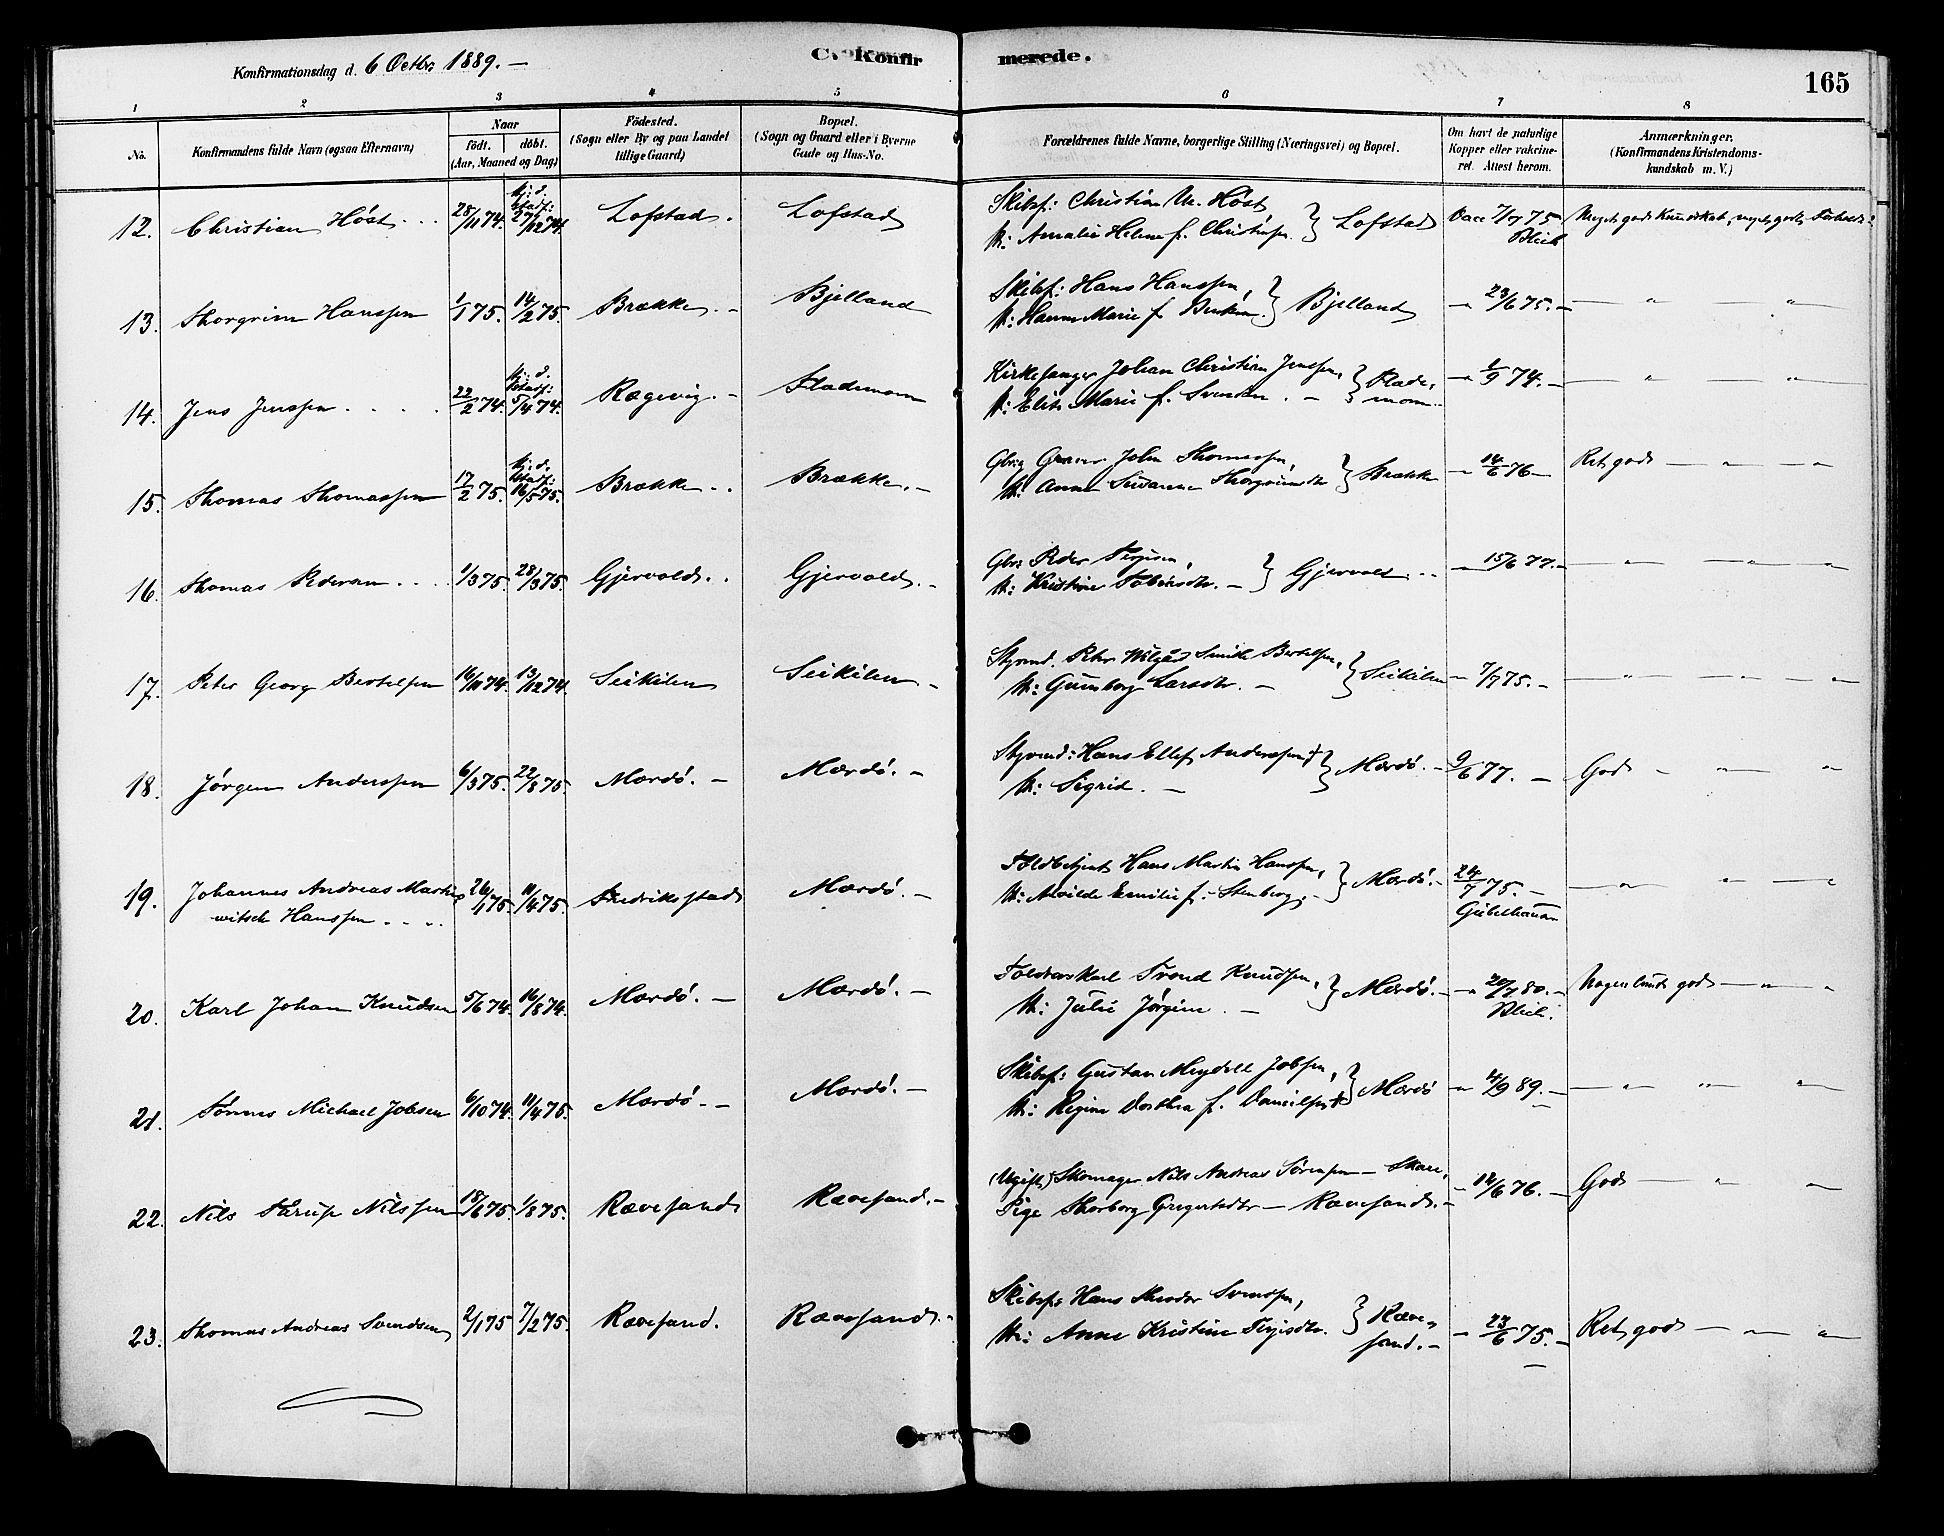 Konfirmationsdag d. 6 Octbr 1889. —
C. Konfirmerede.
165
1 2 3 4 5 6 7 8
No.
Konfirmandens fulde Navn (ogsaa Efternavn)
Naar
födt. döbt.
(Aar, Maaned og Dag)
Födested.
(Sogn eller By og paa Landet
tillige Gaard)
Bopæl.
(Sogn og Gaard eller i Byerne
Gade og Hus-No.
Forældrenes fulde Navne, borgerlige Stilling (Næringsvei) og Bopæl.
Om havt de naturlige
Kopper eller vakcine-
ret. Attest herom.
Anmærkninger.
(Konfirmandens Kristendoms-
kundskab m. V.)
12. Christian Höst 28/11 74. hj: d. Stadf: 27/12 74. Lofstad. Lofstad Skibsf: Christian M. Höst Lofstad Vacc 7/7 75 Meget god Kundskab, meget godt Forhold
H: Amalie Helene f. Blich
13. Thorgrim Hanssen 1/1 75. 14/2 75. Brække. — Bjelland Skibsf: Hans Hanssen, Bjelland — " 23/6 75. — — " — "
H: Hanne Marie f.
14. Jens Jenssen 22/2 74. hj: d. Stadf: 5/4 74. Rægevig. — Flademoen Kirkesanger Johan Christian Jenssen, Flade- — " 1/9 74. — — " — "
H: Elise Marie f. Svendsen. — moen
15. Thomas Thomassen 17/2 75. hj: d. Stadf: 16/5 75. Brække. Brække. — Gbrg John Thomassen, Brække — " 14/6 76 — Ret god — " — "
H: Anne Susanne
16. Thomas Pedersen 1/3 75. 28/3 75. Gjervold. Gjervold. — Gbr: Peder Terjesen, Gjervold. — 15/6 77. — — " — "
H: Kristine Tobiasdtr. —
17. Peter Georg Bertelsen 16/10 74. 13/12 74. Seikilen Seikilen. — Styrmd. Peter Smith Bertelsen, Seikilen — 7/7 75. — — " — "
H: Gunborg Larsdtr. —
18. Jörgen Anderssen 6/3 75. 22/8 75. Mærdö. — Mærdö. — Styrmd: Hans Ellef Anderssen † Mærdö. — 9/6 77. — God — " — "
H: Sigrid. —
19. Johannes Andreas Martin 11/4 75. Fredriksstad Mærdö. — Toldbetjent Hans Martin Hanssen, Mærdö. — 24/7 75. — — " — "
witsch Hanssen H: Alvilde Emilie f. Stenberg. —
20. Karl Johan Knudsen 5/6 74. 16/8 74. Mærdö. — Mærdö. — Trond Knudsen, Mærdö. — 80. — Nogenlunde god — " — "
H: Julie Jörgine. — Blich.
21. Tönnes Michael Jobsen 6/10 74. 11/4 75. Mærdö. — Mærdö. — Skibsf: Gustav Meydell Jobsen, Mærdö — " 4/9 89. — — " — "
H: Regine Dorthea f. Danielsen †
22. Nils Nilssen 18/6 75. 1/8 75. Rævesand Rævesand. — (Ugift) Skomager Nils Andreas Sörensen — — 14/6 76. — God — " — "
Pige Thorborg Gregersdtr — Rævesand. —
23. Thomas Andreas Svendsen 2/1 75 7/2 75. Rævesand. Rævesand. — Skibsf: Hans Theodor Svendsen, Ræve- — 23/6 75. — Ret god — " — "
H: Anne Kristine Terjesdtr. sand. —